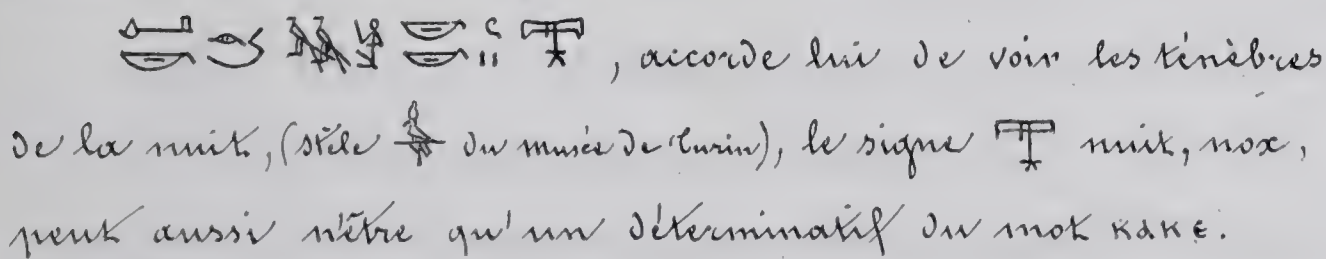 , accorde lui de voir les ténèbres
de la nuit, (stèle du musée de Turin), le signe nuit, nox,
peut aussi n'être qu'un déterminatif du mot ⲕⲁⲕⲉ.